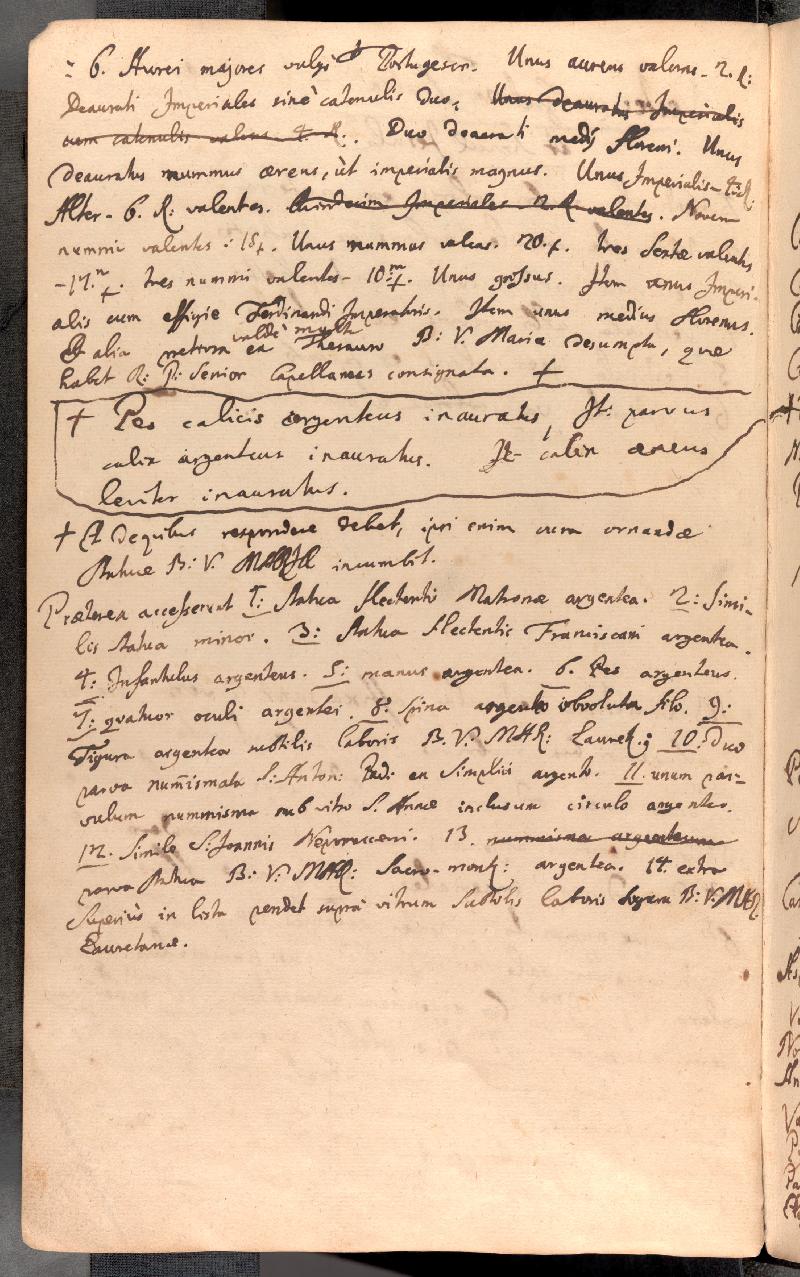 6. Aurei majores vulgò Portugeser. Unus aureus valens - 2. R:
Deaurati Imperiales sinè catenulis duo, Unus deauratus Imperialis
cum catenulis valens 4. R. Duo deaurati medij floreni. Unus
deauratus nummus æreus, ut imperialis magnus. Unus Imperialis
Alter - 6. R: valentes. Imperiales 2. R. valentes. Novem
nummi valentes : 15 x. Unus nummus valens. 20. x. tres sextæ valentes
- 17. x. tres nummi valentes - 10 x. Unus grossus. Item unus Imperi-
alis cum effigie Ferdinandi Imperatoris. Item unus medius florenus.
Et alia valdè multa ex Thesauro B: V. Mariæ desumpta, quæ
habet R: P: Senior Capellanus consignata. +
+ Pes calicis argenteus inauratus, It: parvus
calix argenteus inauratus. It calix æneus
leviter inauratus.
+ Et de quibus respondere debet, ipsi enim cura ornandæ
statuæ B: V. MARIÆ incumbit.
Præterea accesserunt 1: Statua flectentis Matronæ argentea. 2: Simi-
lis statua minor. 3: Statua flectentis Franciscani argentea.
4: Infantulus argenteus. 5: manus argentea. 6. Pes argenteus.
7: quatuor oculi argentei. 8: spina argento obvoluta filo. 9:
Figura argentea subtilis laboris B. V. MAR: Lauret.; 10. Duo
parva numismata S: Anton: Pad: ex simplici argento. 11. unum par-
vulum nummisma sub vitro S. Annæ inclusum circulo argenteo.
12. Simile S: Joannis Nepomuceni. 13. nummisma argenteum
parva statua B: V: MAR: Sacro-mont: argentea. 14. extra
superius in lista pendet supra vitrum subtilis laboris figura B: V. MAR
Lauretanæ.